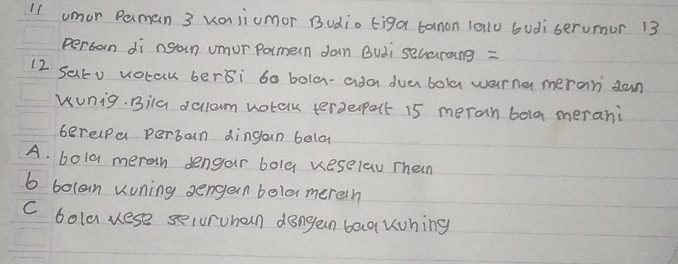 11 umur Paman 3 kali umor Budi. tiga tahun lalu budi berumur 13
perban dingan umur Paman dan Budi sekarang =
12 satu kotak berisi 60 bola- ada dua bola warna merah dan
kunig. Bila dalam kotak terdapat 15 merah bola merahi
berapa perban dingan bola
A. bola merah dengan bola keselau rhan
b bolah kuning dengan bola merah
C bola kese seluruhan dengan bola kuning